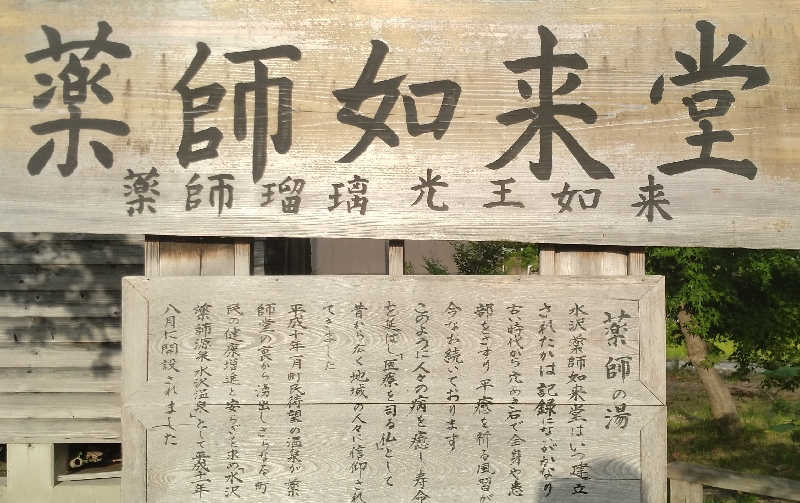 薬師如来堂
薬師瑠璃光王如来
薬師の湯
水沢、薬師如来堂はいつ建立
されたかは記録にないがかなり
古い時代から此めき石で全身や患
部をさすり平癒を祈る風習が
今なお続いております
このように人々の病を癒し寿命
を延ばし「医療を司る仏」として
昔から広く地域の人々に信仰され
てきました
平成十年一月町民待望の温泉が薬
師堂の裏から湧出しさらなる町
民の健康増進と安らぎを求め「水沢
薬師源泉水沢温泉」として平成十一年
八月に開設されました